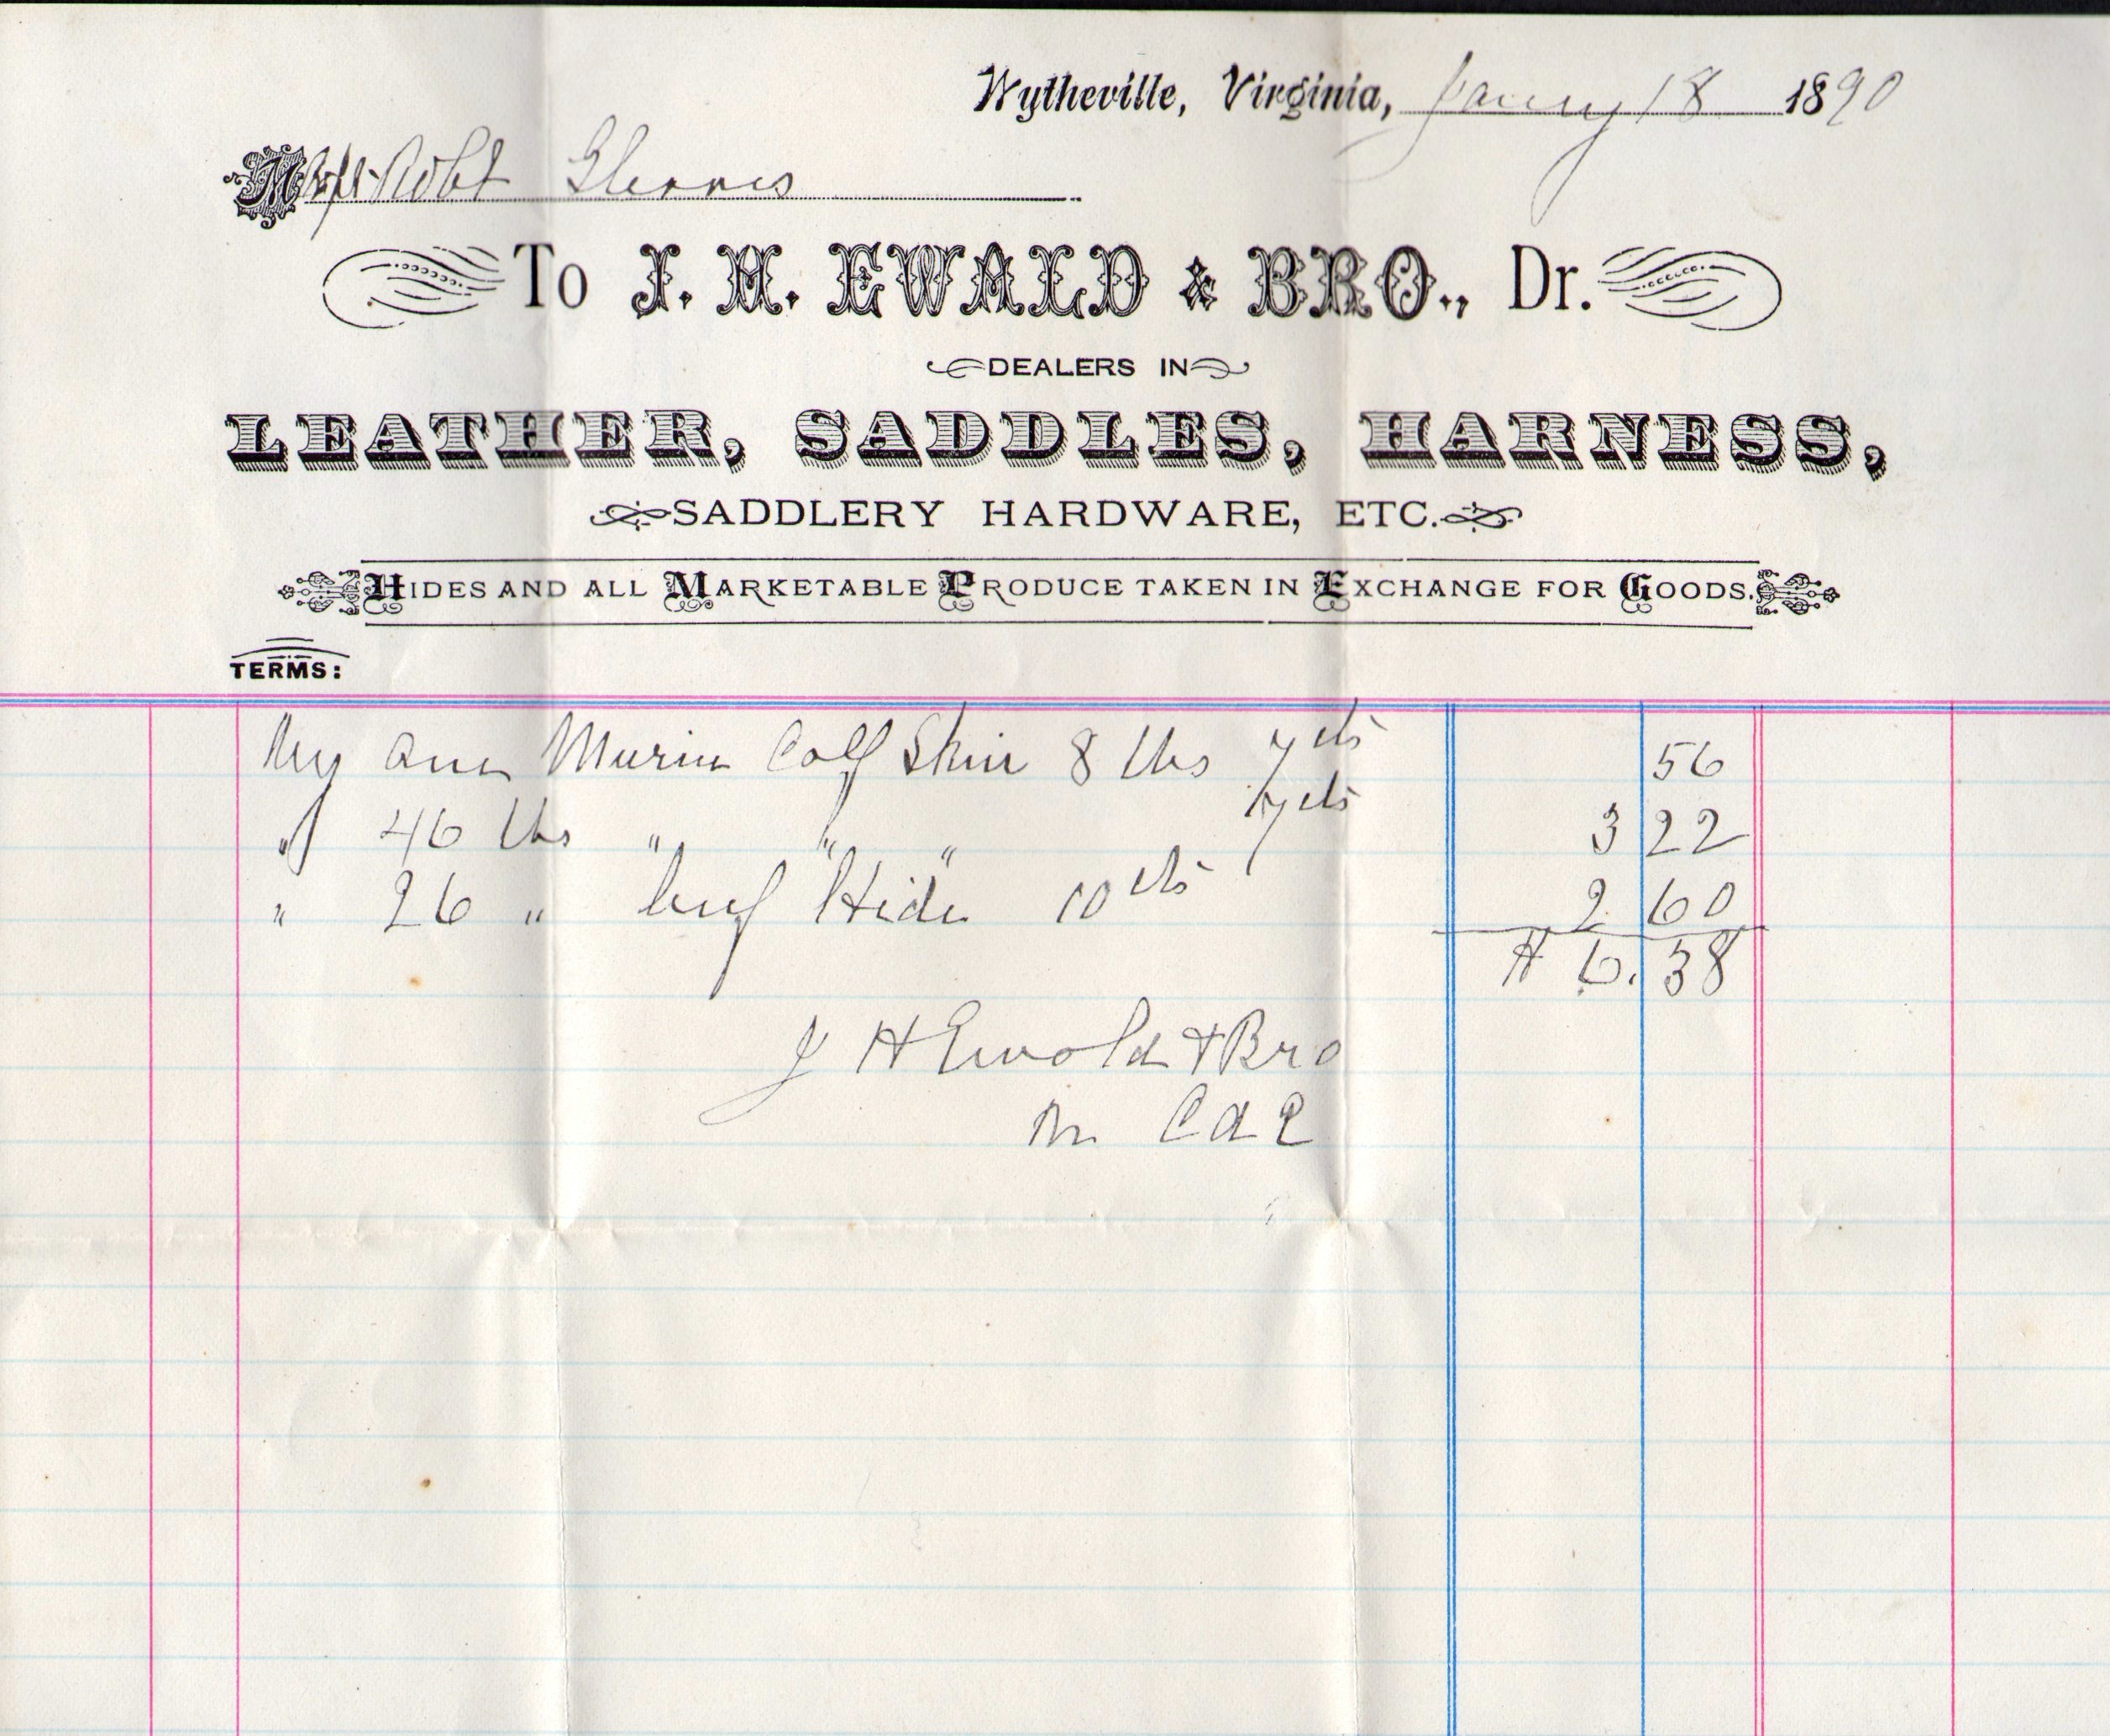 Wytheville, Virginia, Jany 18 1890
M Capt Robt
To J. H. EWALD & BRO., Dr.
DEALERS IN
LEATHER, SADDLES, HARNESS,
SADDLERY HARDWARE, ETC.
HIDES AND ALL MARKETABLE PRODUCE TAKEN IN EXCHANGE FOR GOODS.
TERMS:
Calf Skin 8 lbs 7 cts 56
" 46 lbs " " " 7 cts 3 22
" 26 " beef Hide 10 cts 2 60
$ 6.38
J H Ewald & Bro